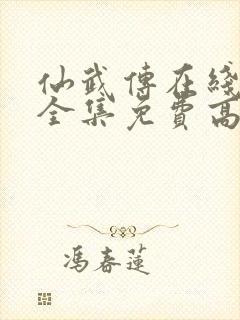 仙武傳在綫
全集免費高
馮春蓮